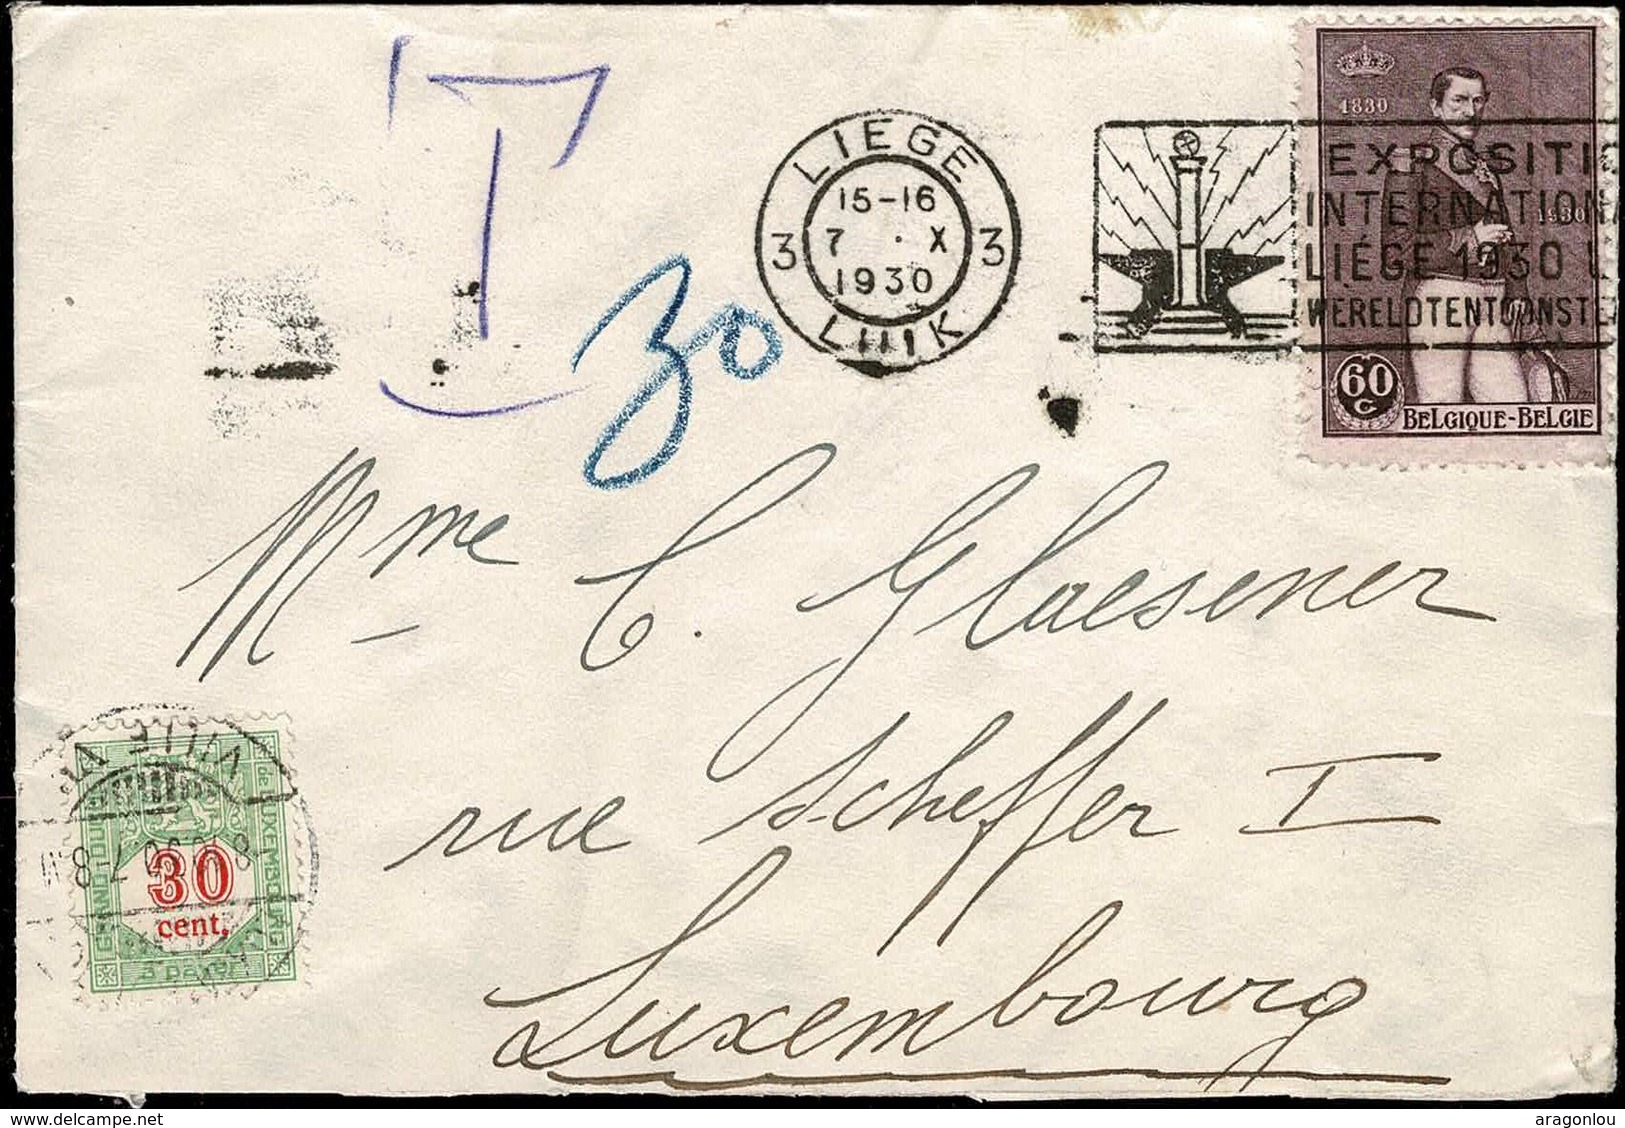 T
30
LIEGE
3 15-16 3
7 · X
1930
LUIK
1830
1930
EXPOSITIO
INTERNATIONA
LIÉGE 1930 L
WERELDTENTOONSTE
60
C
BELGIQUE-BELGIË
Mme C. Glaesener
rue Scheffer I
Luxembourg
VILLE
GRAND DUCHÉ de LUXEMBOURG
30
cent.
à payer
aragonlou